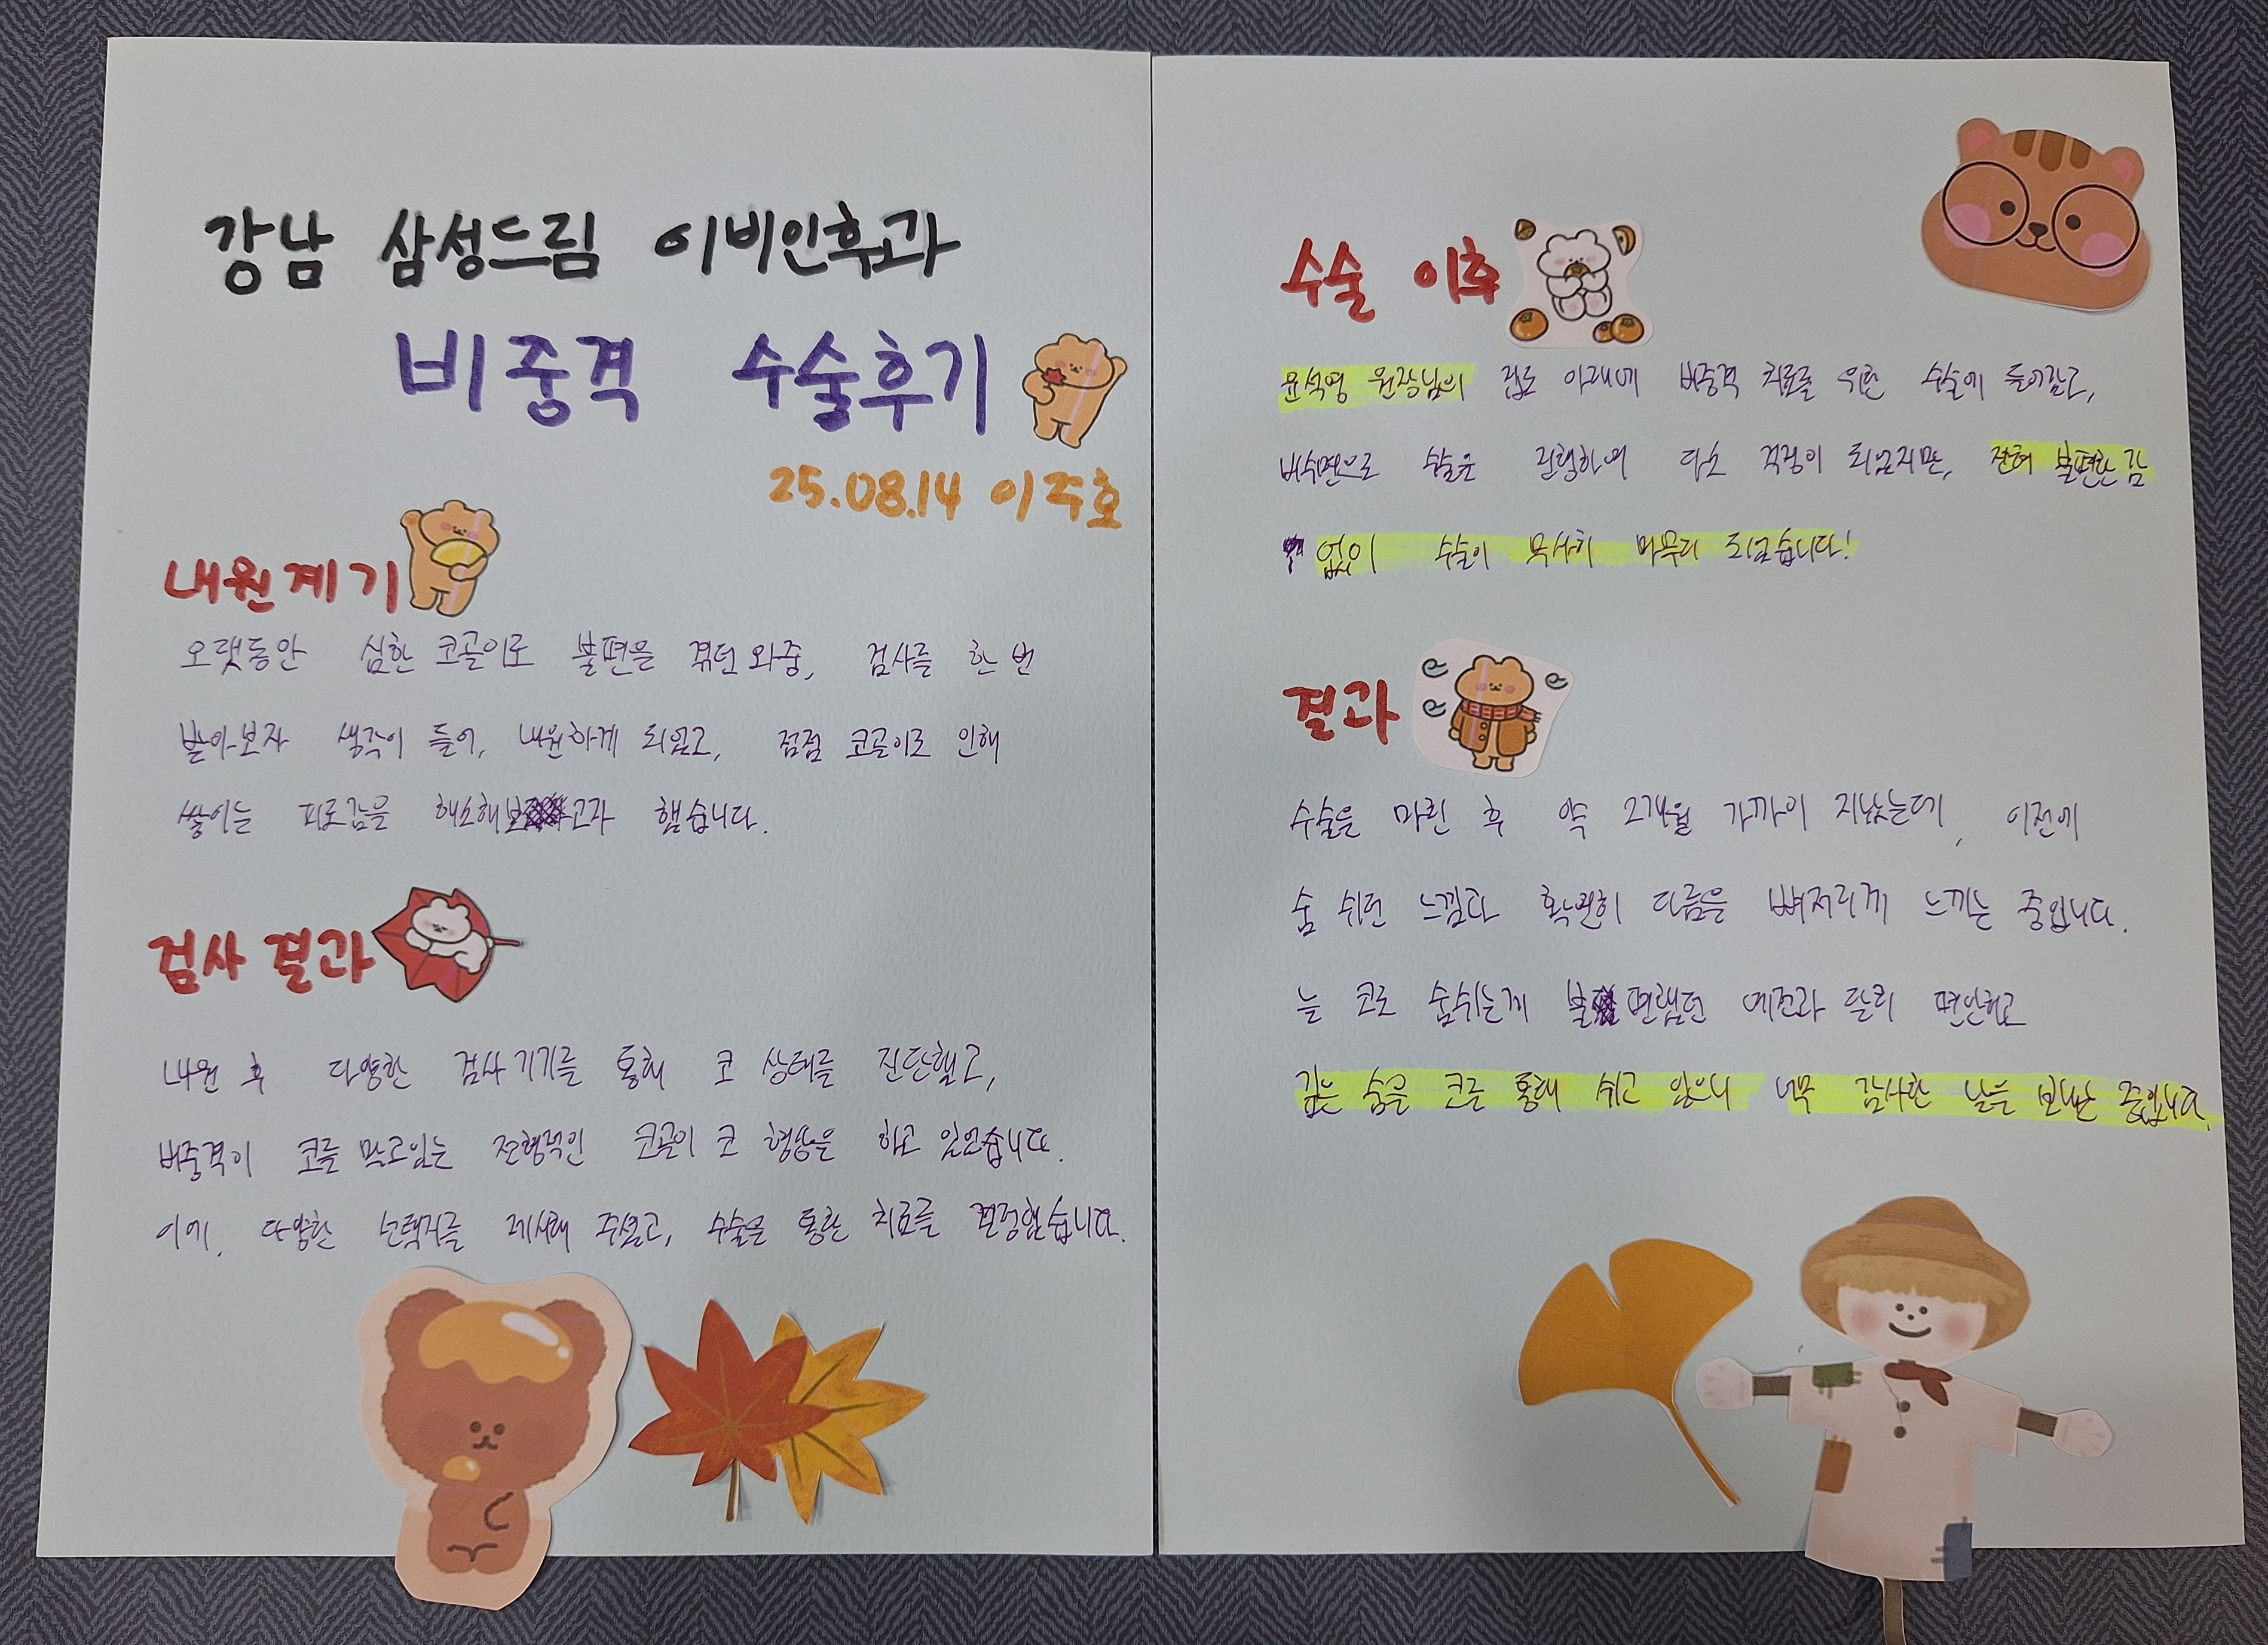 강남 삼성드림 이비인후과
비중격 수술후기
25.08.14 이주호
내원계기
오랫동안 심한 코골이로 불편을 겪던 와중, 검사를 한 번
받아보자 생각이 들어, 내원하게 되었고, 점점 코골이로 인해
쌓이는 피로감을 해소해보고자 했습니다.
검사 결과
내원 후 다양한 검사 기기를 통해 코 상태를 진단했고,
비중격이 코를 막고있는 전형적인 코골이 코 형상을 하고 있었습니다.
이에, 다양한 선택지를 제시해 주셨고, 수술을 통한 치료를 결정했습니다.
수술 이후
윤석영 원장님의 집도 아래에 비중격 치료를 위한 수술에 들어갔고,
비수면으로 수술을 진행하여 다소 걱정이 되었지만, 전혀 불편한 감
없이 수술이 무사히 마무리 되었습니다!
결과
수술을 마친 후 약 2개월 가까이 지났는데, 이전에
숨 쉬던 느낌과 확연히 다름을 뼈저리게 느끼는 중입니다.
늘 코로 숨쉬는게 불편했던 예전과 달리 편안하고
깊은 숨을 코를 통해 쉬고 있으니 너무 감사한 날을 보내는 중입니다.